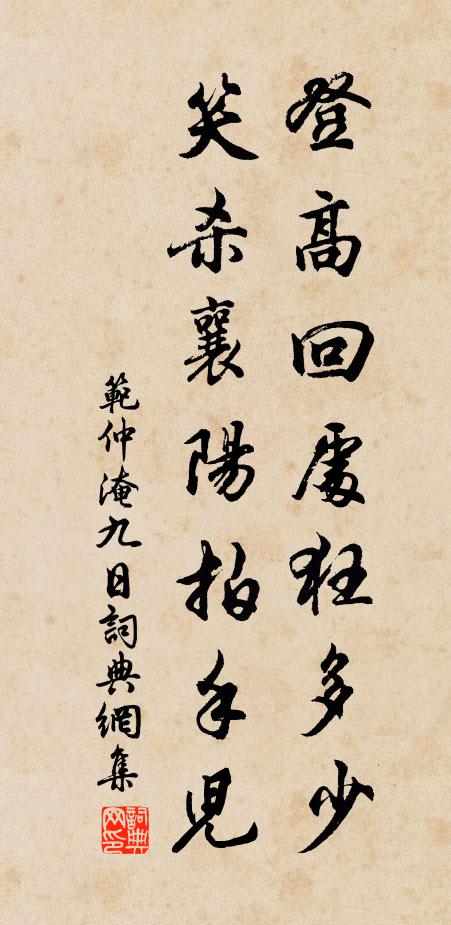 登高回處狂多少
笑杀襄陽拍手兒
範仲淹九日詞典網集
詞典网印